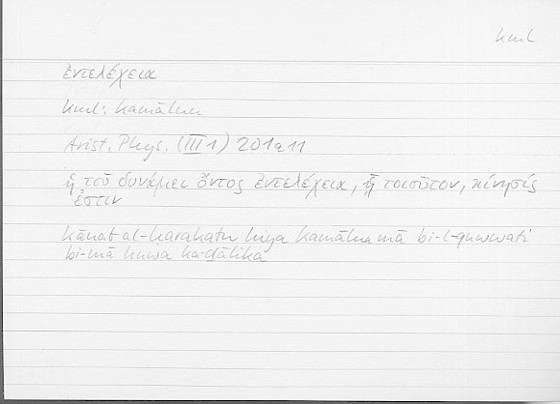 kml
ἐντελέχεια
kml: kamālun
Arist. Phys. (III 1) 201a11
ἡ τοῦ δυνάμει ὄντος ἐντελέχεια, ᾗ τοιοῦτον, κίνησίς
ἐστιν
kānat al-ḥarakatu hiya kamāla mā bi-l-quwwati
bi-mā huwa ka-ḏālika